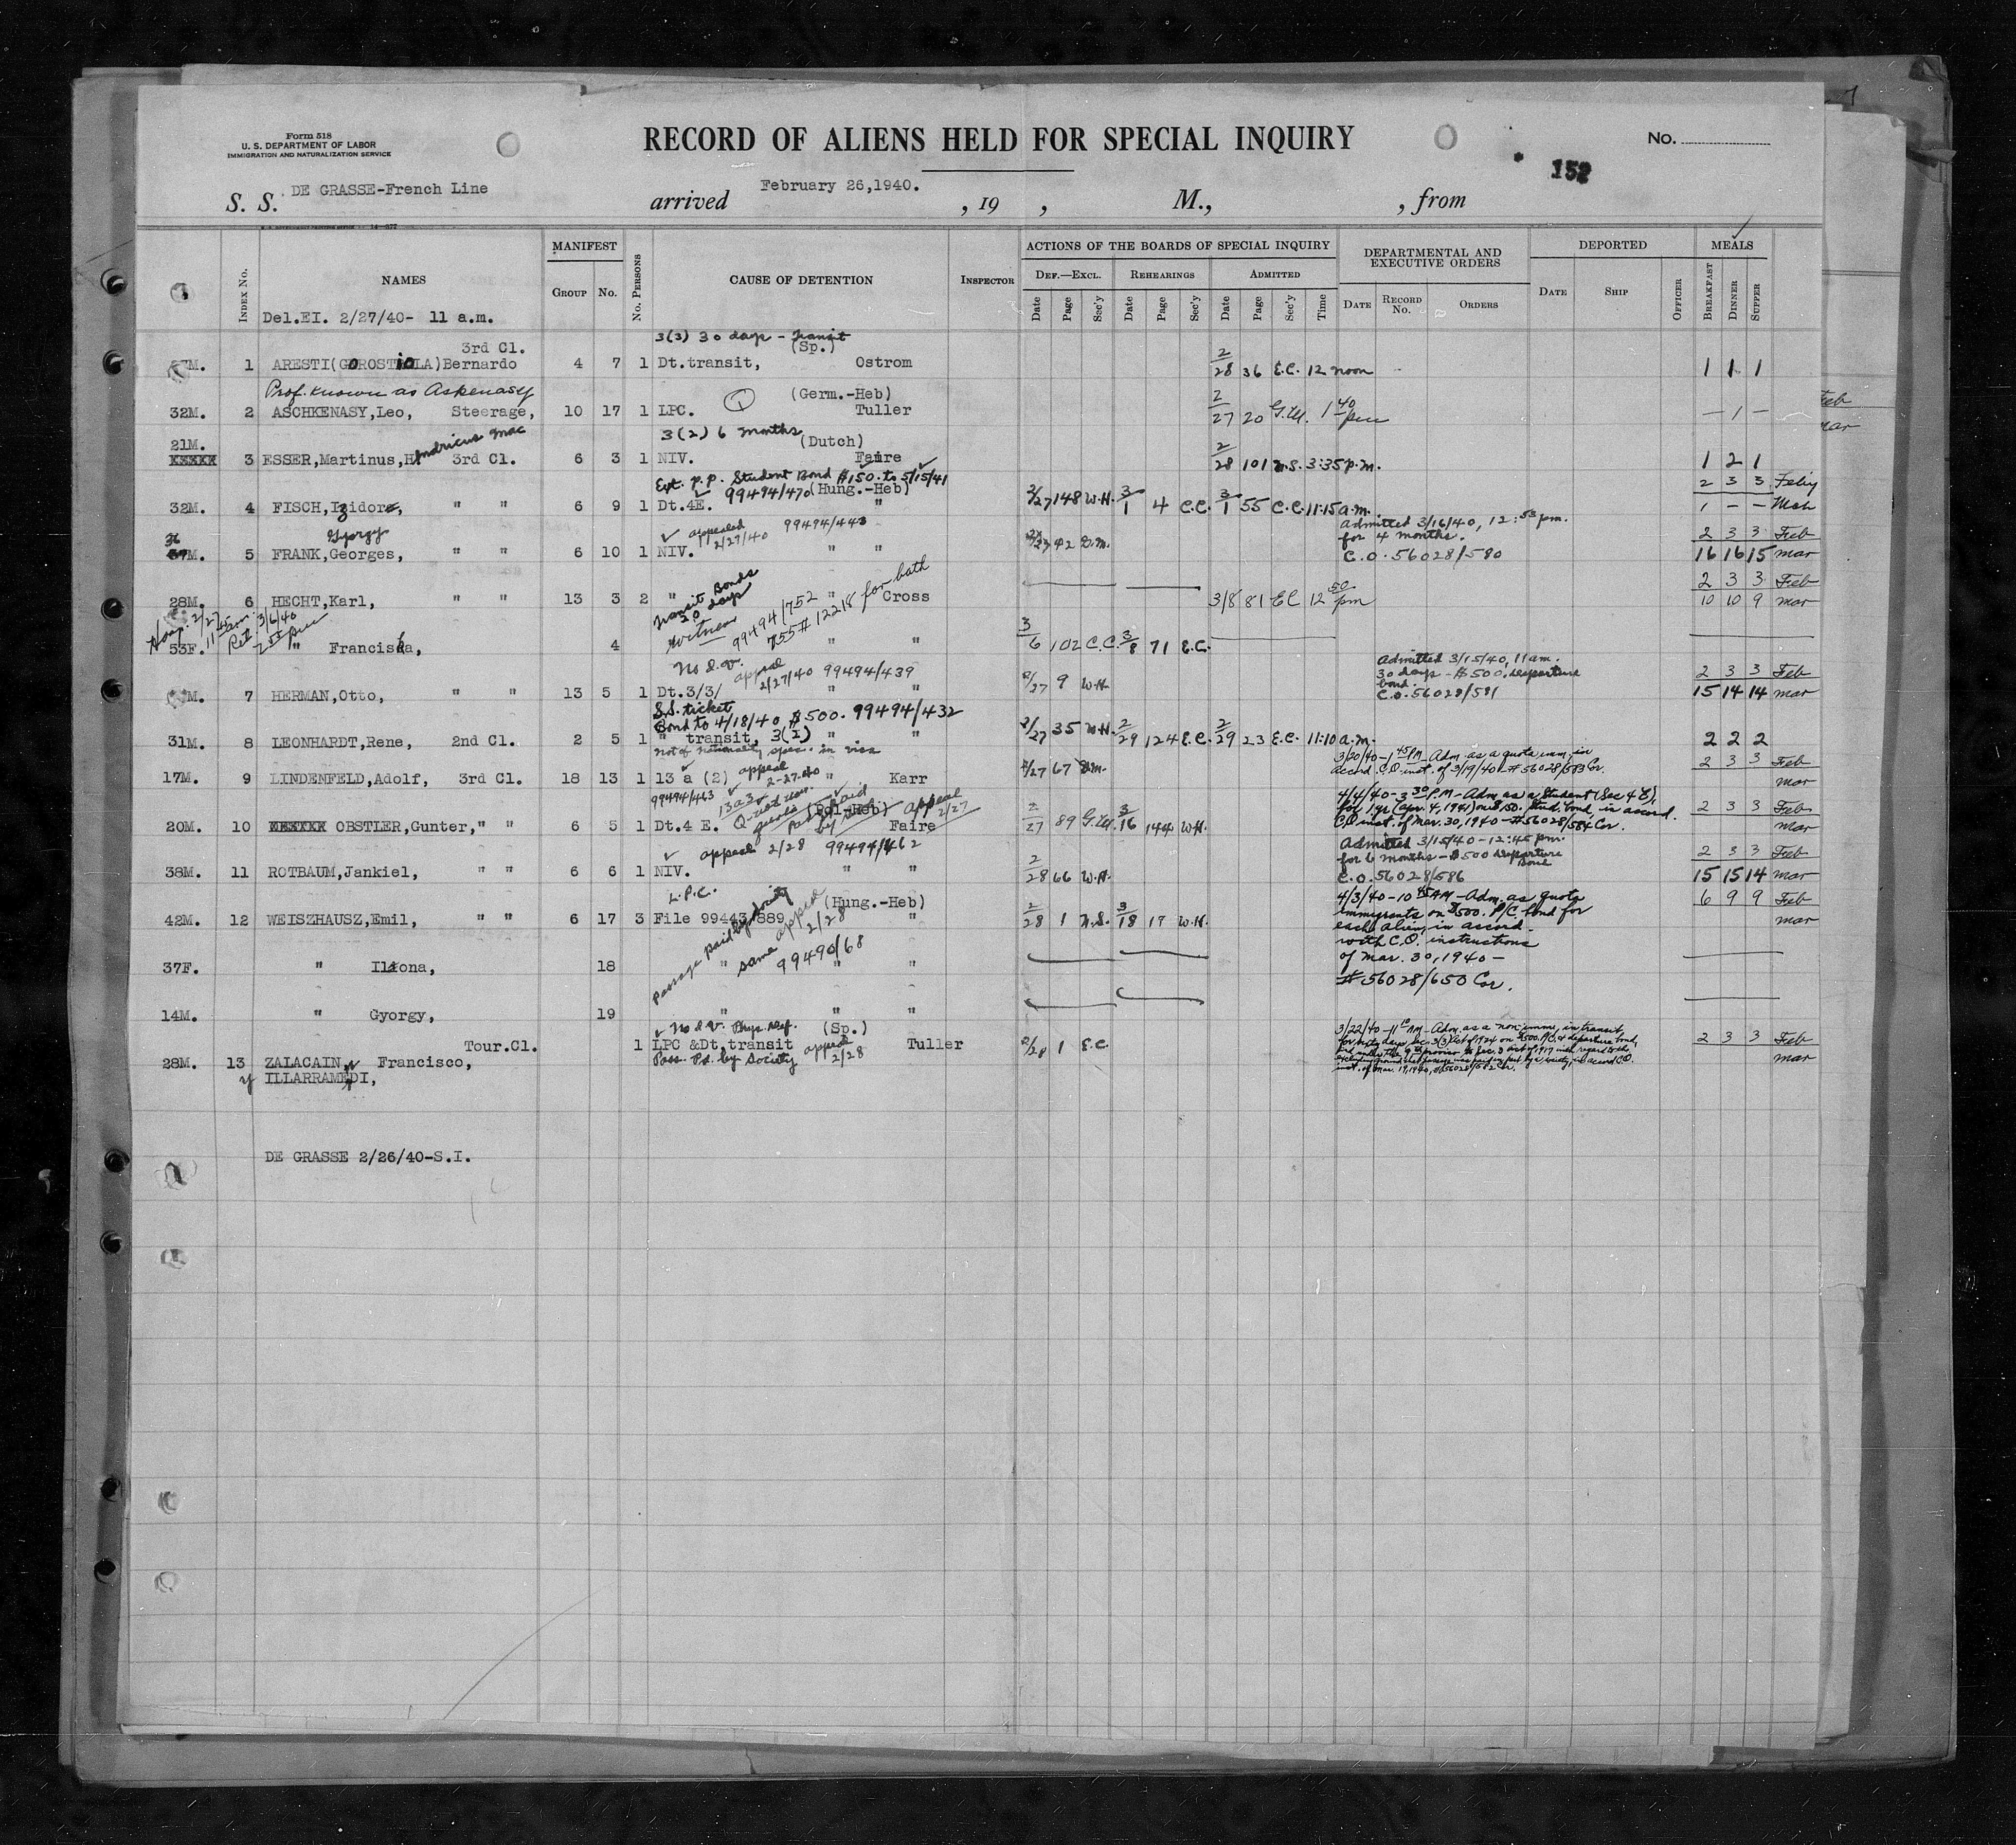 Form 518
U. S. DEPARTMENT OF LABOR
IMMIGRATION AND NATURALIZATION SERVICE
RECORD OF ALIENS HELD FOR SPECIAL INQUIRY
No.
152
S. S. DE GRASSE-French Line arrived February 26,1940. , 19 , M., , from
INDEX No. NAMES MANIFEST GROUP No. No. PERSONS CAUSE OF DETENTION INSPECTOR ACTIONS OF THE BOARDS OF SPECIAL INQUIRY DEPARTMENTAL AND EXECUTIVE ORDERS DEPORTED MEALS
DEF.—EXCL. REHEARINGS ADMITTED
Date Page Sec'y Date Page Sec'y Date Page Sec'y Time DATE RECORD No. ORDERS DATE SHIP OFFICER BREAKFAST DINNER SUPPER
Del.EI. 2/27/40- 11 a.m.
3(3) 30 days - Transit
3rd Cl. (Sp.)
M. 1 ARESTI(GOROSTIOLA)Bernardo 4 7 1 Dt.transit, Ostrom 2/28 36 E.C. 12 noon 1 1 1
Prof. known as Askenasy (Germ.-Heb)
32M. 2 ASCHKENASY,Leo, Steerage, 10 17 1 LPC. Q Tuller 2/27 20 G.W. 1 40 pm — 1 —
3(2) 6 months (Dutch)
21M.
3 ESSER,Martinus,Hindricus Mac 3rd Cl. 6 3 1 NIV. Faire 2/28 101 N.S. 3:35 p.m. 1 2 1
Ext. p.p. Student Bond $150. to 5/15/41
99494/470 (Hung.-Heb)
32M. 4 FISCH,Izidore, " " 6 9 1 Dt.4E. " 2/27 148 W.H. 3/1 4 C.C. 3/1 55 C.C. 11:15 a.m. 2 3 3 Feby
1 — — Mch
Gyorgy appealed 2/27/40 99494/443
36
M. 5 FRANK,Georges, " " 6 10 1 NIV. " " 42 Admitted 3/16/40, 12:53 pm.
for 4 months.
C.O. 56028/580
2 3 3 Feb
16 16 15 mar
28M. 6 HECHT,Karl, " " 13 3 2 " " Cross 3/8 81 EC 12 50 pm 2 3 3 Feb
10 10 9 mar
Transit Bonds
20 days
witness
99494/752
755# 12218 for both
Hosp. 2/27
11 45 am
Ret. 3/6/40
53F. " Franciska, 4 " " 3/6 102 C.C. 3/8 71 E.C.
No I.V. appeal 2/27/40 99494/439
M. 7 HERMAN,Otto, " " 13 5 1 Dt.3/3/ " " 2/27 9 W.H. Admitted 3/15/40, 11 am.
30 days - $500. departure
bond.
C.O. 56028/581
2 3 3 Feb
15 14 14 mar
S.S. ticket
Bond to 4/18/40 $500. 99494/432
31M. 8 LEONHARDT,Rene, 2nd Cl. 2 5 1 " transit, 3(2) " " 2/27 35 W.H. 2/29 124 E.C. 2/29 23 E.C. 11:10 a.m. 2 2 2
Not of nationality spec. in visa
17M. 9 LINDENFELD,Adolf, 3rd Cl. 18 13 1 13 a (2) appeal 2-27-40 " Karr 2/27 67 3/20/40-1 45 PM-Adm. as a quota imm. in
accord. C.O. inst. of 3/19/40-#56028/583 Cor.
2 3 3 Feb
mar
99494/463 13a3 (Pol.-Heb) Appeal 2/27
20M. 10 OBSTLER,Gunter, " " 6 5 1 Dt.4 E. Faire 2/27 89 G.W. 3/16 144 W.H. 4/4/40-3 30 P.M-Adm as a Student (Sec 4 E),
for 1 yr (Apr. 4, 1941) on $150. Stud. bond, in accord.
C.O. inst. of Mar. 30, 1940-#56028/584 Cor.
2 3 3 Feb
mar
appeal 2/28 99494/462
38M. 11 ROTBAUM,Jankiel, " " 6 6 1 NIV. " " 2/28 66 W.H. Admitted 3/15/40-12:45 pm.
for 6 months-$500 departure
C.O. 56028/586
2 3 3 Feb
15 15 14 mar
L.P.C. (Hung.-Heb)
42M. 12 WEISZHAUSZ,Emil, " " 6 17 3 File 99443/889 " 2/28 1 N.S. 3/18 19 W.H. 4/3/40-10 45 AM-Adm. as quota
immigrants on $500. P/C bond for
each alien, in accord.
with C.O. instructions
of Mar. 30, 1940 -
#56028/650 Cor.
6 9 9 Feb
mar
Passage paid by society
same appeal 2/28
99490/68
37F. " Ilona, 18 " " "
14M. " Gyorgy, 19 " " "
No I.V. Phys. Def. (Sp.)
Tour.Cl. 1 LPC &Dt,transit Tuller 2/28 1 E.C.
Pass. Pd. by Society appeal 2/28
28M. 13 ZALACAIN y Francisco,
y ILLARRAMEDI,
3/22/40-11 AM-Adm. as a non-imm. in transit,
for sixty days, sec. 3(3) Act of 1924 on $500. P/C & departure bond,
and under the 9th proviso to Sec. 3 Act of 1917 with regard to the
inst. of Mar. 19, 1940, #56028/582 Cor.
2 3 3 Feb
mar
DE GRASSE 2/26/40-S.I.